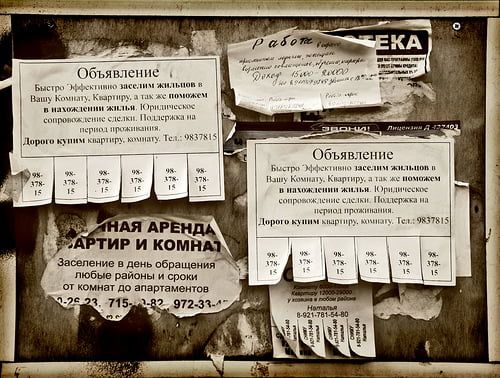 Объявление
Быстро Эффективно заселим жильцов в
Вашу Комнату, Квартиру, а так же поможем
в нахождении жилья. Юридическое
сопровождение сделки. Поддержка на
период проживания.
Дорого купим квартиру, комнату. Тел.: 9837815
98-
378-
15
98-
378-
15
98-
378-
15
98-
378-
15
98-
378-
15
98-
378-
15
Работа
Доход
ТЕКА
ЗВОНИ!
Лицензия Д
Объявление
Быстро Эффективно заселим жильцов в
Вашу Комнату, Квартиру, а так же поможем
в нахождении жилья. Юридическое
сопровождение сделки. Поддержка на
период проживания.
Дорого купим квартиру, комнату. Тел.: 9837815
98-
378-
15
98-
378-
15
98-
378-
15
98-
378-
15
98-
378-
15
98-
378-
15
НАЯ АРЕНДА
АРТИР И КОМНАТ
Заселение в день обращения
любые районы и сроки
от комнат до апартаментов
0-26 23, 715- 0-82 972-33-4
Квартиру 12000-29000
у хозяина в любом районе
Наталья
8-921-781-54-80